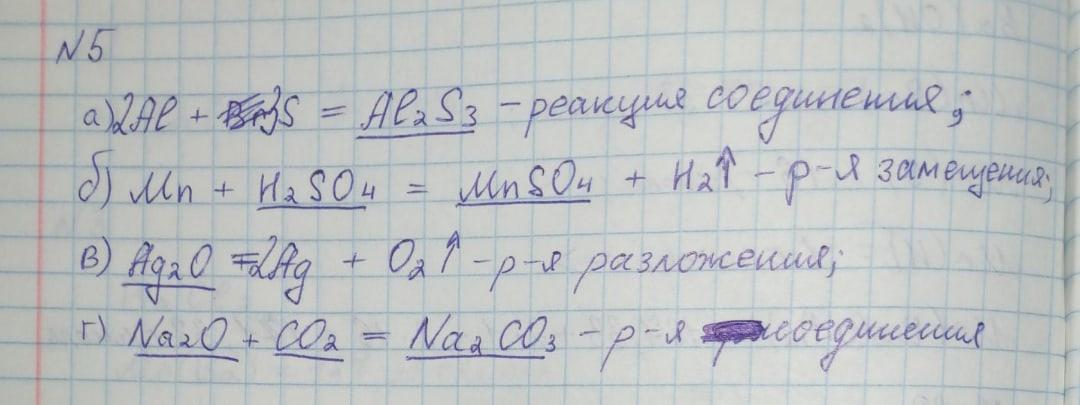 N5
а) 2Al + 3S = Al2S3 - реакция соединения;
б) Mn + H2SO4 = MnSO4 + H2↑ - р-я замещения;
в) Ag2O = 2Ag + O2↑ - р-я разложения;
г) Na2O + CO2 = Na2CO3 - р-я соединения